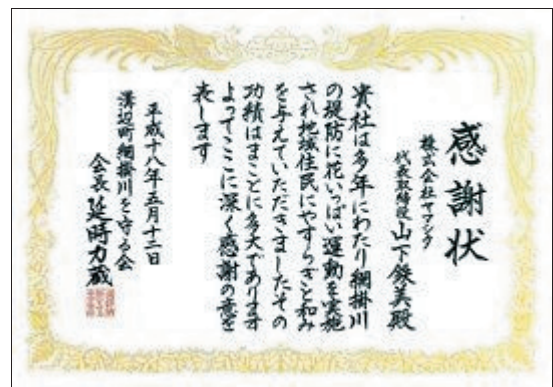 感謝状
株式会社ヤマシタ
代表取締役 山下鉄美殿
貴社は多年にわたり網掛川
の堤防に花いっぱい運動を実施
され地域住民にやすらぎと和み
を与えていただきましたその
功績はまことに多大であります
よってここに深く感謝の意を
表します
平成十八年五月十二日
溝辺町網掛川を守る会
会長 延時力蔵